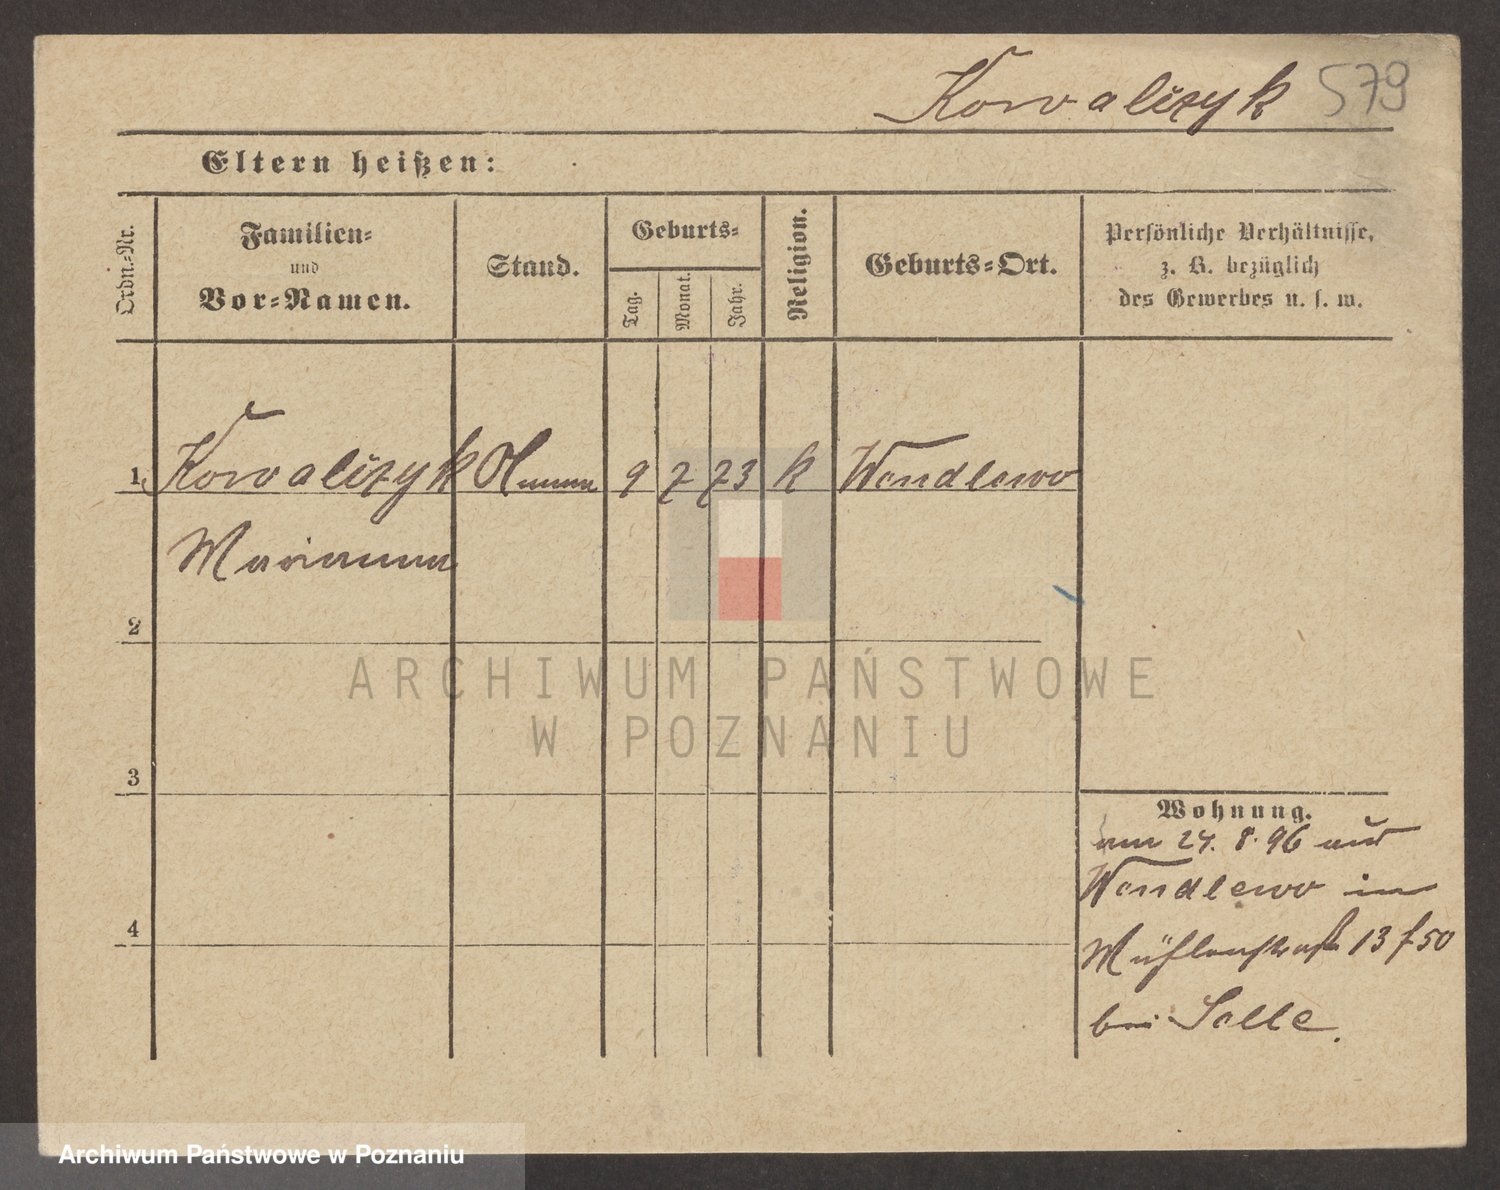 Kowalczyk 579
Eltern heißen:
Ordn.-Nr.
Familien-
und
Vor-Namen.
Stand.
Geburts-
Tag.
Monat.
Jahr.
Religion.
Geburts-Ort.
Persönliche Verhältnisse,
z. B. bezüglich
des Gewerbes u. s. w.
1 Kowalczyk 9 7 73 k Wondlewo
Marianna
2
3
4
ARCHIWUM PAŃSTWOWE
W POZNANIU
Wohnung.
am 24. 8. 96 aus
Wondlewo in
Mühlenstraße 13 f 50
bei
Archiwum Państwowe w Poznaniu